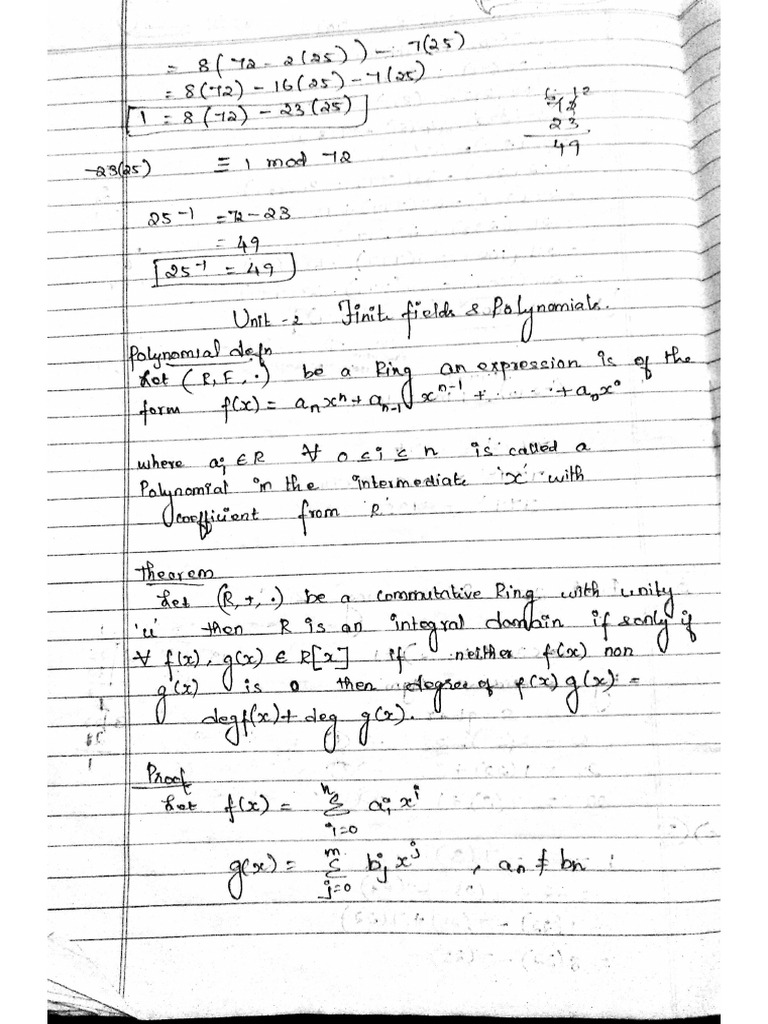 = 8(72 - 2(25)) - 7(25)
= 8(72) - 16(25) - 7(25)
1 = 8(72) - 23(25)
72
23
49
-23(25) ≡ 1 mod 72
25⁻¹ = 72-23
= 49
25⁻¹ = 49
Unit-2 Finite fields & Polynomials.
Polynomial defn
Let (R, F, ·) be a Ring an expression is of the
form f(x) = aₙxⁿ + aₙ₋₁ xⁿ⁻¹ + ...... + aₙx⁰
where aᵢ ∈ R ∀ 0 ≤ i ≤ n is called a
Polynomial in the intermediate 'x' with
coefficient from R
Theorem
Let (R, +, ·) be a commutative Ring with unity
'u' then R is an integral domain if & only if
∀ f(x), g(x) ∈ R[x] if neither f(x) non
g(x) is 0 then degree of f(x) g(x) =
deg f(x) + deg g(x).
Proof
Let f(x) = n Σ i=0 aᵢ xⁱ
g(x) = m Σ j=0 bⱼ xʲ , aₙ ≠ bn